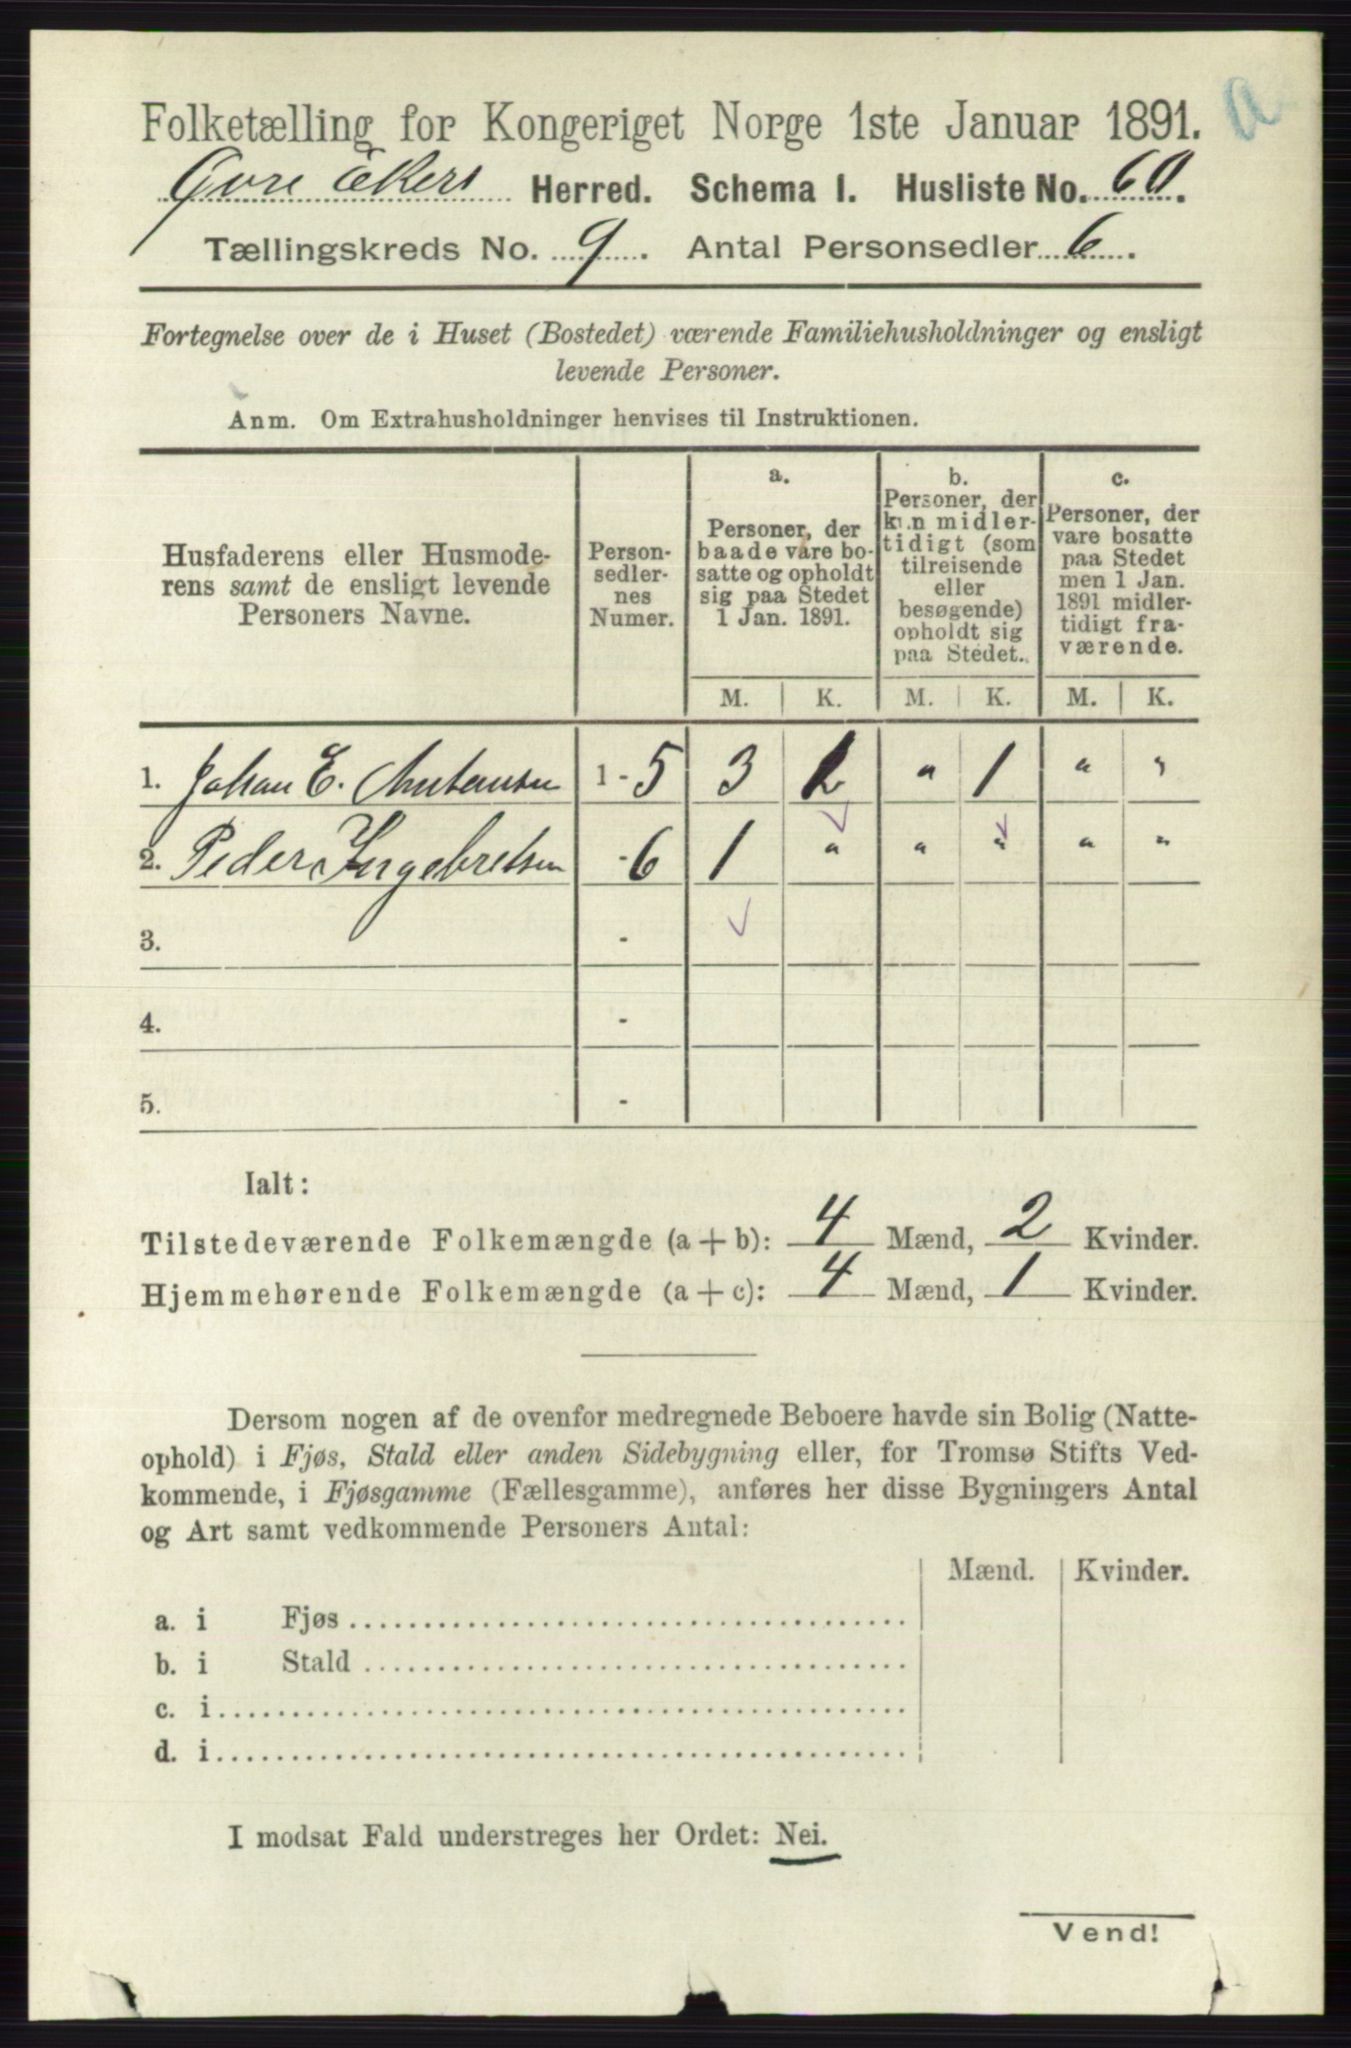 a
Folketælling for Kongeriget Norge 1ste Januar 1891.
Øvre Ekers Herred. Schema I. Husliste No. 60.
Tællingskreds No. 9. Antal Personsedler 6.
Fortegnelse over de i Huset (Bostedet) værende Familiehusholdninger og ensligt
levende Personer.
Anm. Om Extrahusholdninger henvises til Instruktionen.
Husfaderens eller Husmode-
rens samt de ensligt levende
Personers Navne.
Person-
sedler-
nes
Numer.
a.
Personer, der
baade vare bo-
satte og opholdt
sig paa Stedet
1 Jan. 1891.
b.
Personer, der
kun midler-
tidigt (som
tilreisende
eller
besøgende)
opholdt sig
paa Stedet.
c.
Personer, der
vare bosatte
paa Stedet
men 1 Jan.
1891 midler-
tidigt fra-
værende.
M. K. M. K. M. K.
1. Johan E. 1 - 5 3 1 " 1 " "
2. Peder Ingebretsen - 6 1 " " " " "
3. -
4. -
5. -
Ialt:
Tilstedeværende Folkemængde (a + b): 4 Mænd, 2 Kvinder.
Hjemmehørende Folkemængde (a + c): 4 Mænd, 1 Kvinder.
Dersom nogen af de ovenfor medregnede Beboere havde sin Bolig (Natte-
ophold) i Fjøs, Stald eller anden Sidebygning eller, for Tromsø Stifts Ved-
kommende, i Fjøsgamme (Fællesgamme), anføres her disse Bygningers Antal
og Art samt vedkommende Personers Antal:
Mænd. Kvinder.
a. i Fjøs
b. i Stald
c. i
d. i
I modsat Fald understreges her Ordet: Nei.
Vend!